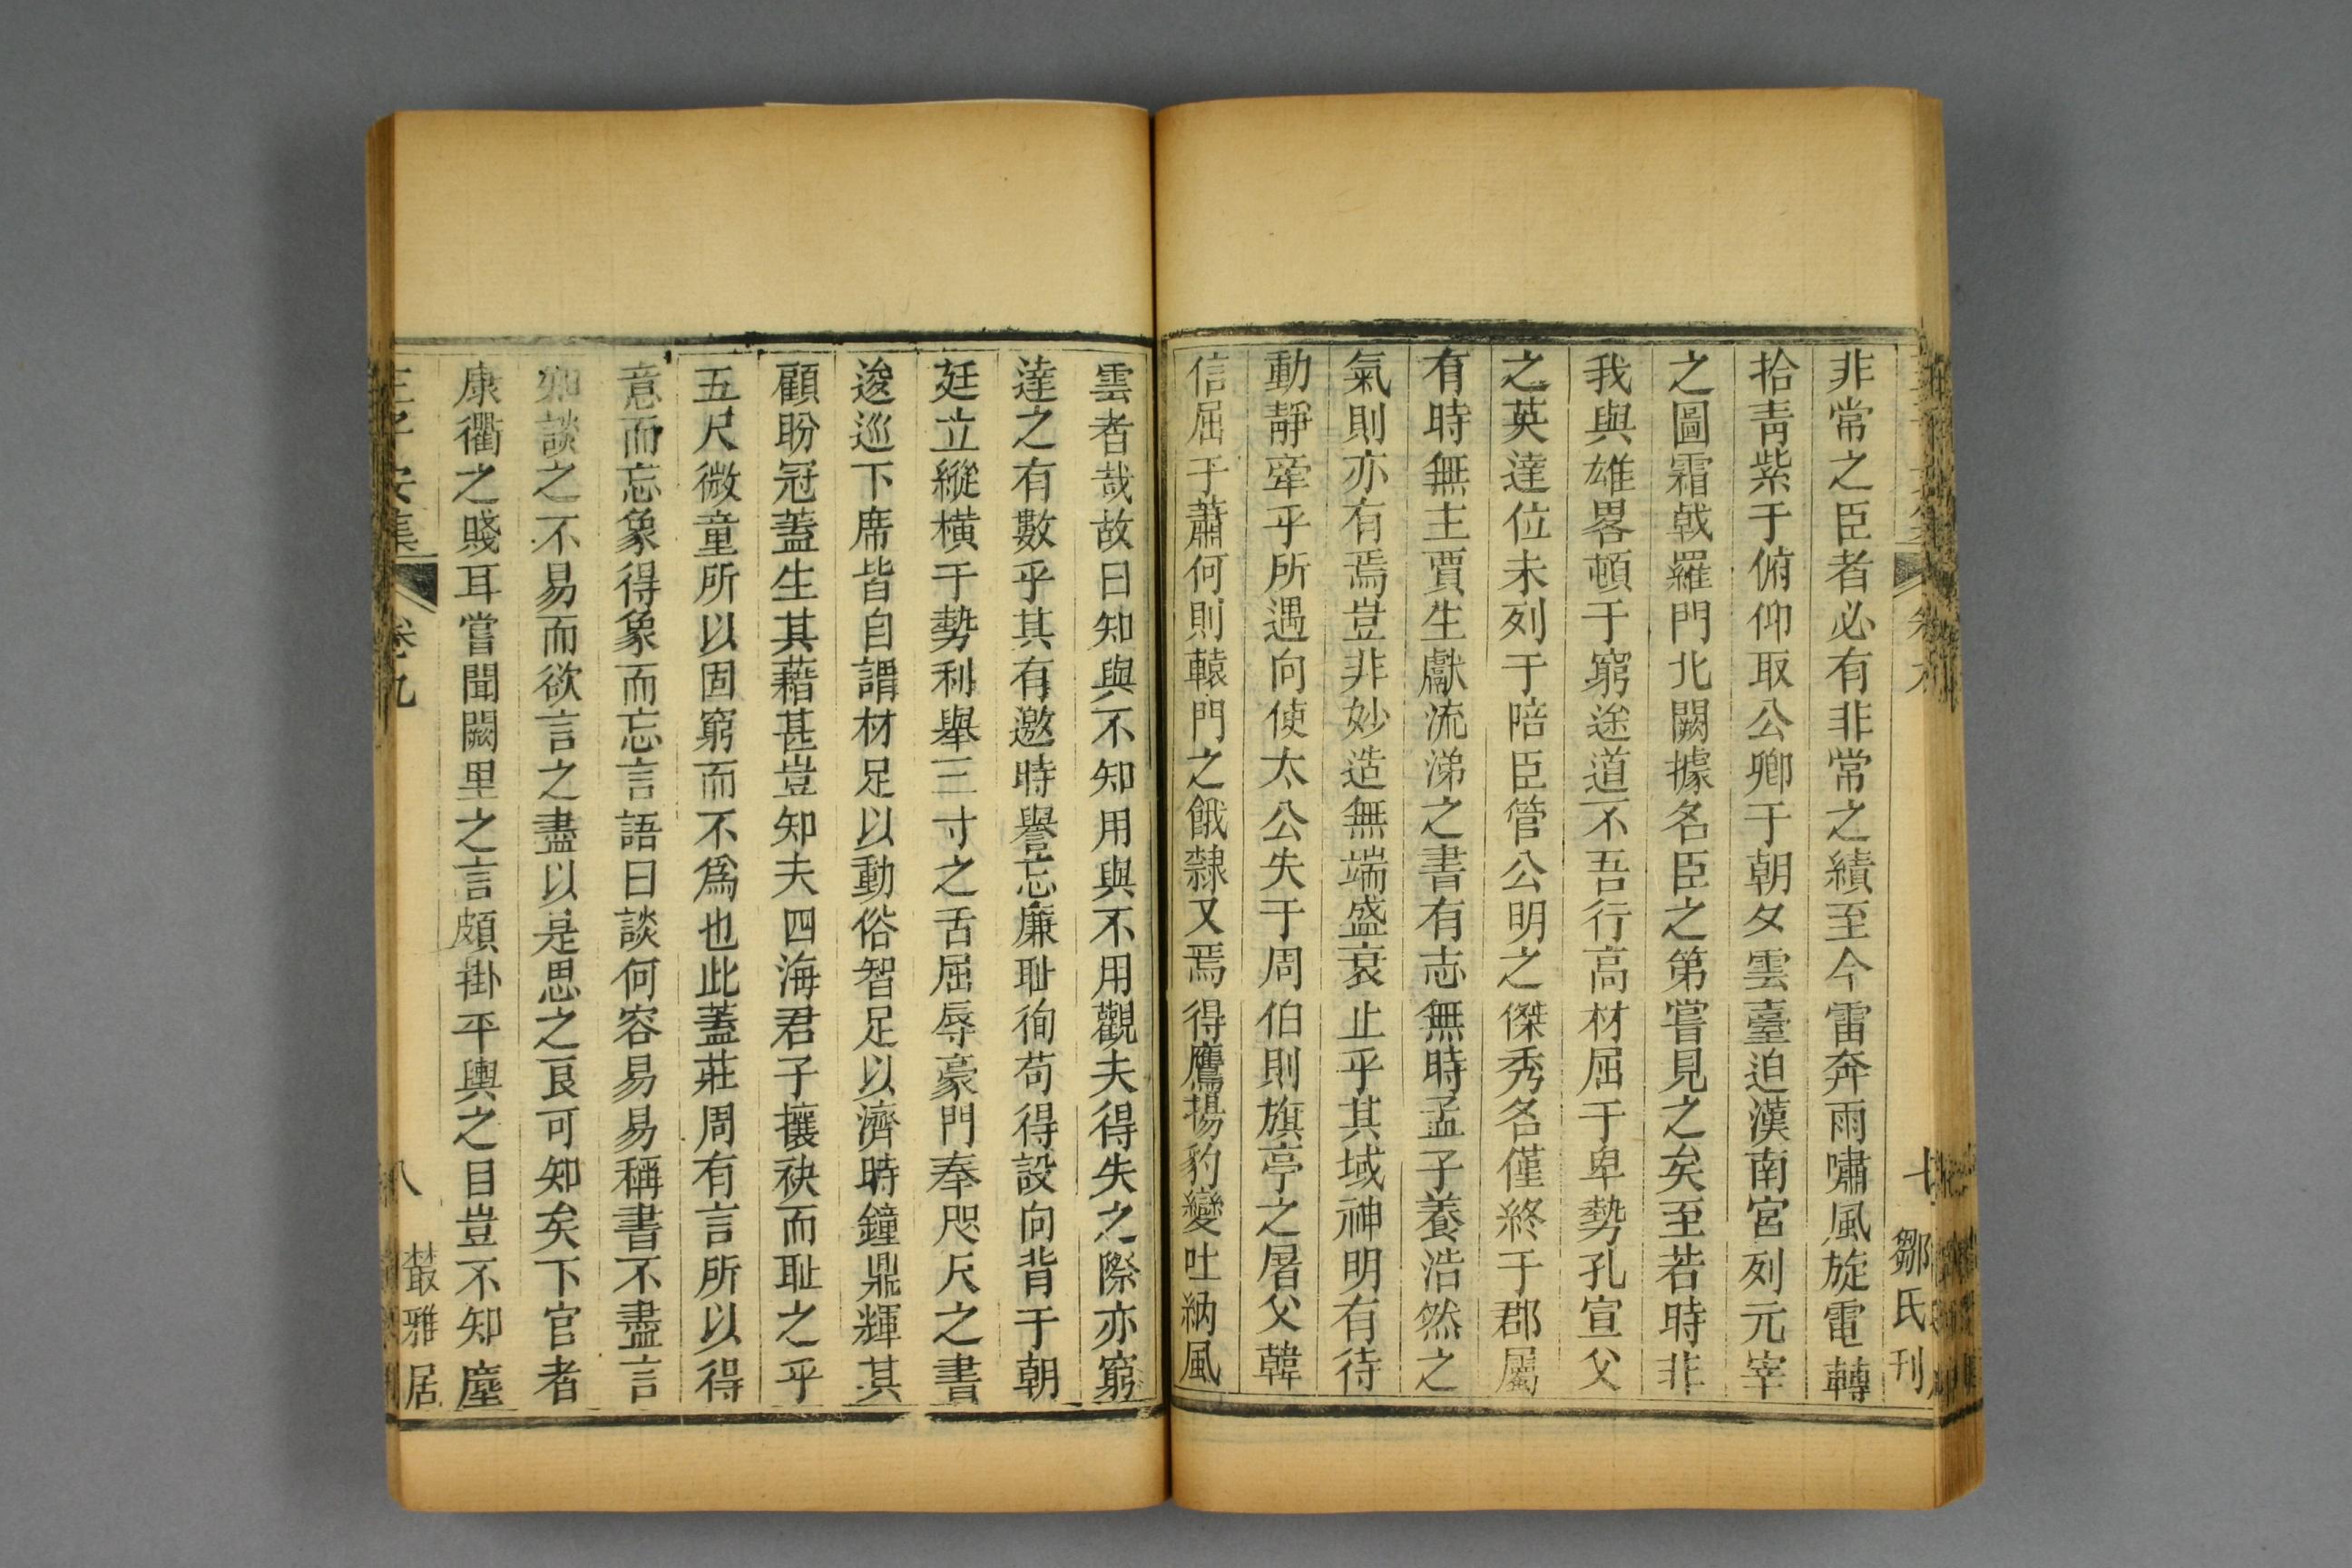 非常之臣者必有非常之績至今雷奔雨嘯風旋電轉
拾靑紫于俯仰取公卿于朝夕雲臺迫漢南宮列元宰
之圖霜戟羅門北闕據名臣之第嘗見之矣至若時非
我與雄畧頓于窮途道不吾行高材屈于卑勢孔宣父
之英達位未列于陪臣管公明之傑秀名僅終于郡屬
有時無主賈生獻流涕之書有志無時孟子養浩然之
氣則亦有焉豈非妙造無端盛衰止乎其域神明有待
動靜牽乎所遇向使太公失于周伯則旗亭之屠父韓
信屈于蕭何則轅門之餓隸又焉得鷹揚豹變吐納風
七 鄒氏刊
雲者哉故曰知與不知用與不用觀夫得失之際亦窮
達之有數乎其有邀時譽忘廉耻徇苟得設向背于朝
廷立縱橫于勢利舉三寸之舌屈辱豪門奉咫尺之書
逡巡下席皆自謂材足以動俗智足以濟時鐘鼎輝其
顧盼冠蓋生其藉甚豈知夫四海君子攘袂而耻之乎
五尺微童所以固窮而不爲也此蓋莊周有言所以得
意而忘象得象而忘言語曰談何容易易稱書不盡言
卽談之不易而欲言之盡以是思之艮可知矣下官者
康衢之賤耳嘗聞闕里之言頗掛平輿之目豈不知塵
王子安集 卷九 八 叢雅居